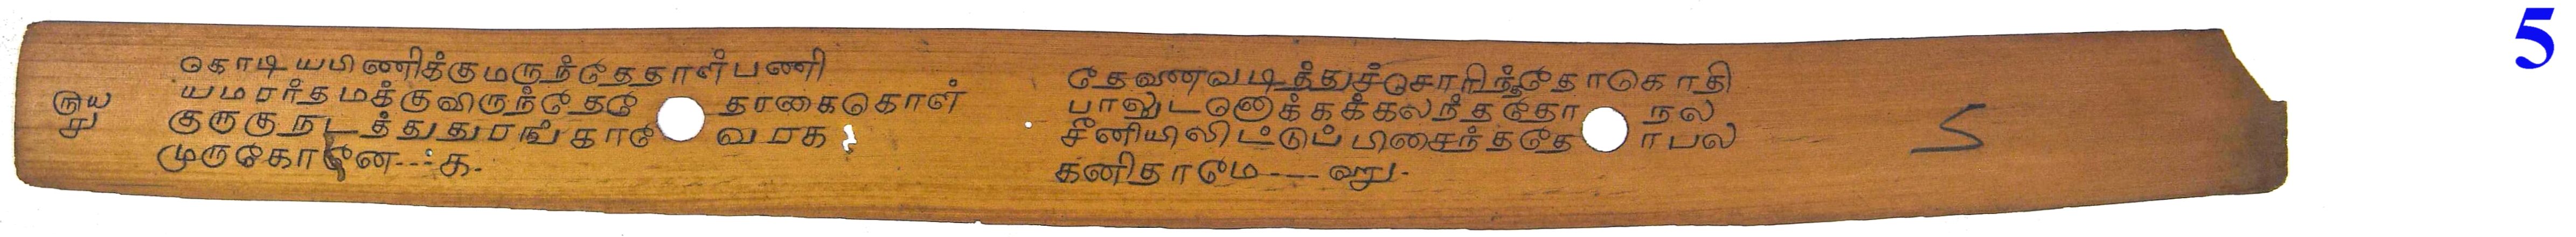 5
கொடியபிணிக்குமருந்தேதாள்பணி
யமரர்தமக்குவிருந்தேதே தாரகைகொள்
குருகுநடத்துதுரங்காவே வரக
முருகோனே---க.
தேவணவடித்துச்சொரிந்தோகாதி
பாலுடனெக்கக்கலந்ததோ நல
சீனியிலிட்டுப்பிசைந்ததே ாபல
கனிதாமே----
5